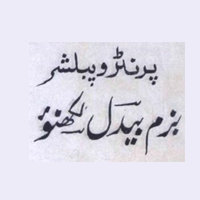 پرنٹر و پبلشر
بزم بیدل لکھنؤ